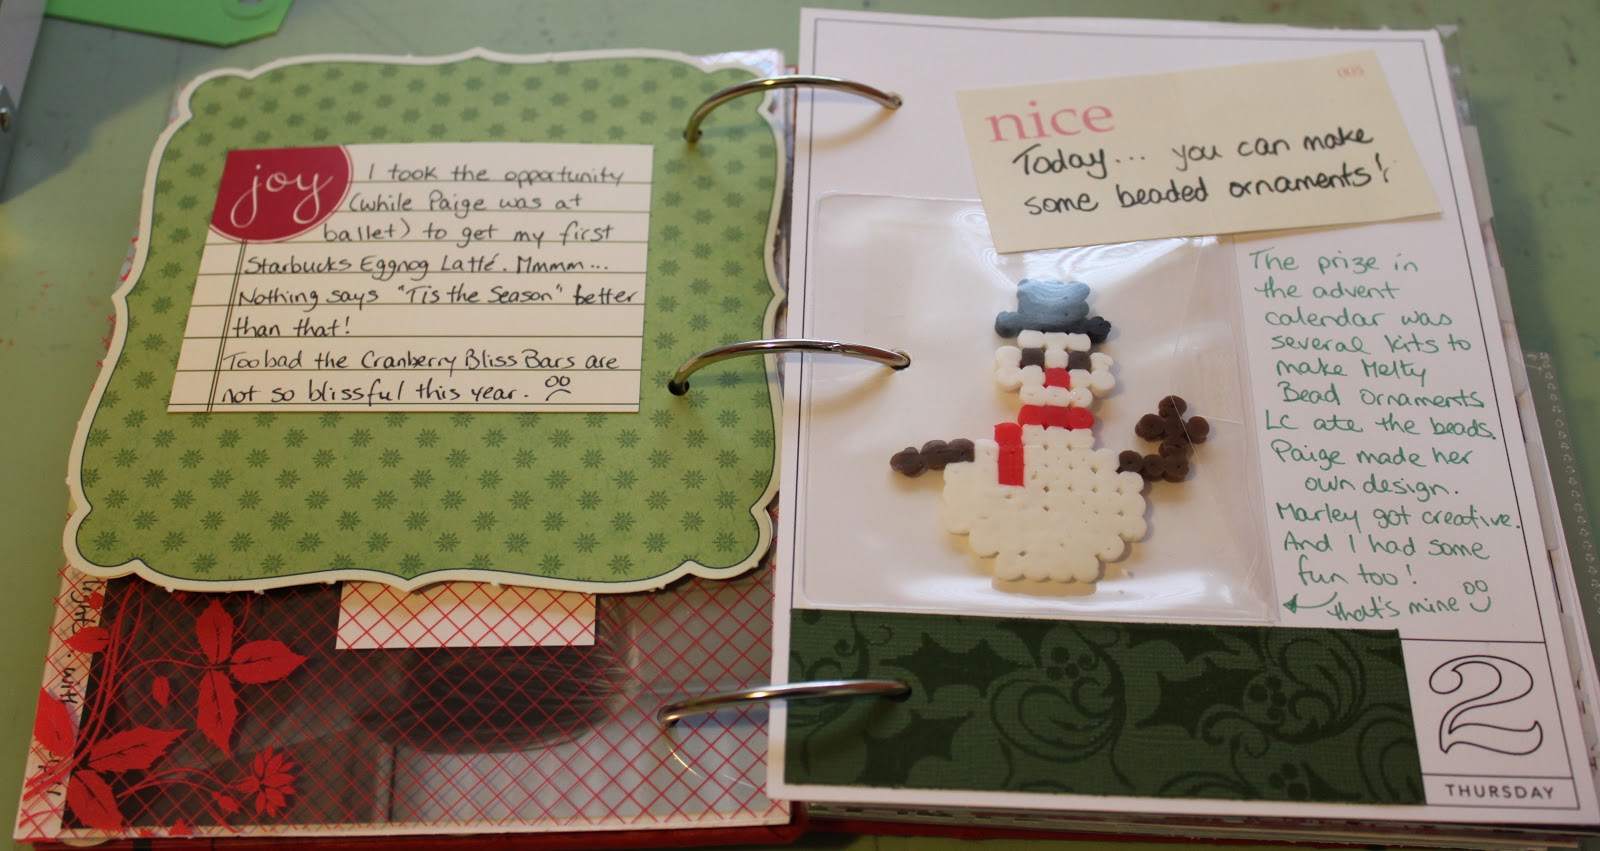 joy
I took the opportunity
(while Paige was at
ballet) to get my first
Starbucks Eggnog Latté. Mmmm...
Nothing says "Tis the Season" better
than that!
Too bad the Cranberry Bliss Bars are
not so blissful this year.
005
nice
Today... you can make
some beaded ornaments!
The prize in
the advent
calendar was
several kits to
make Melty
Bead ornaments
LC ate the beads.
Paige made her
own design.
Marley got creative.
And I had some
fun too!
that's mine
2
THURSDAY